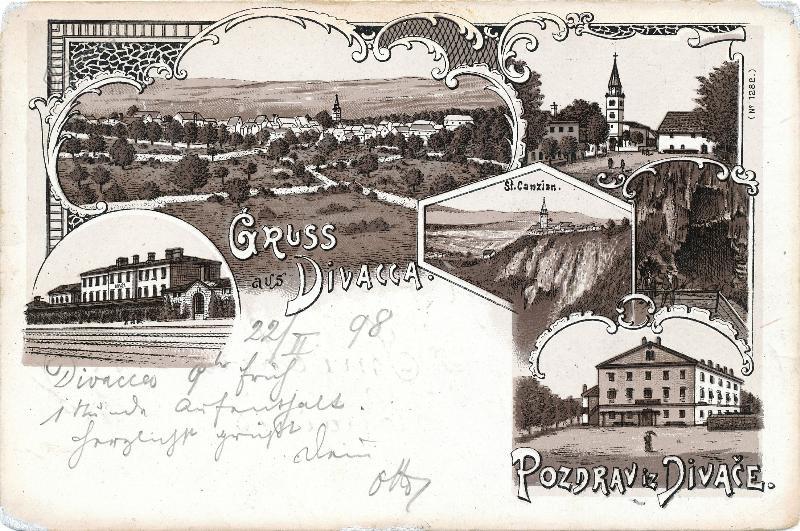 (No 1282.)
St. Canzian.
GRUSS
aus DIVACCA.
22/II 98
Divacca 9 hr früh
1 Stunde Aufenthalt.
Herzlichst grüßt
Dein
Otto
POZDRAV iz DIVAČE.